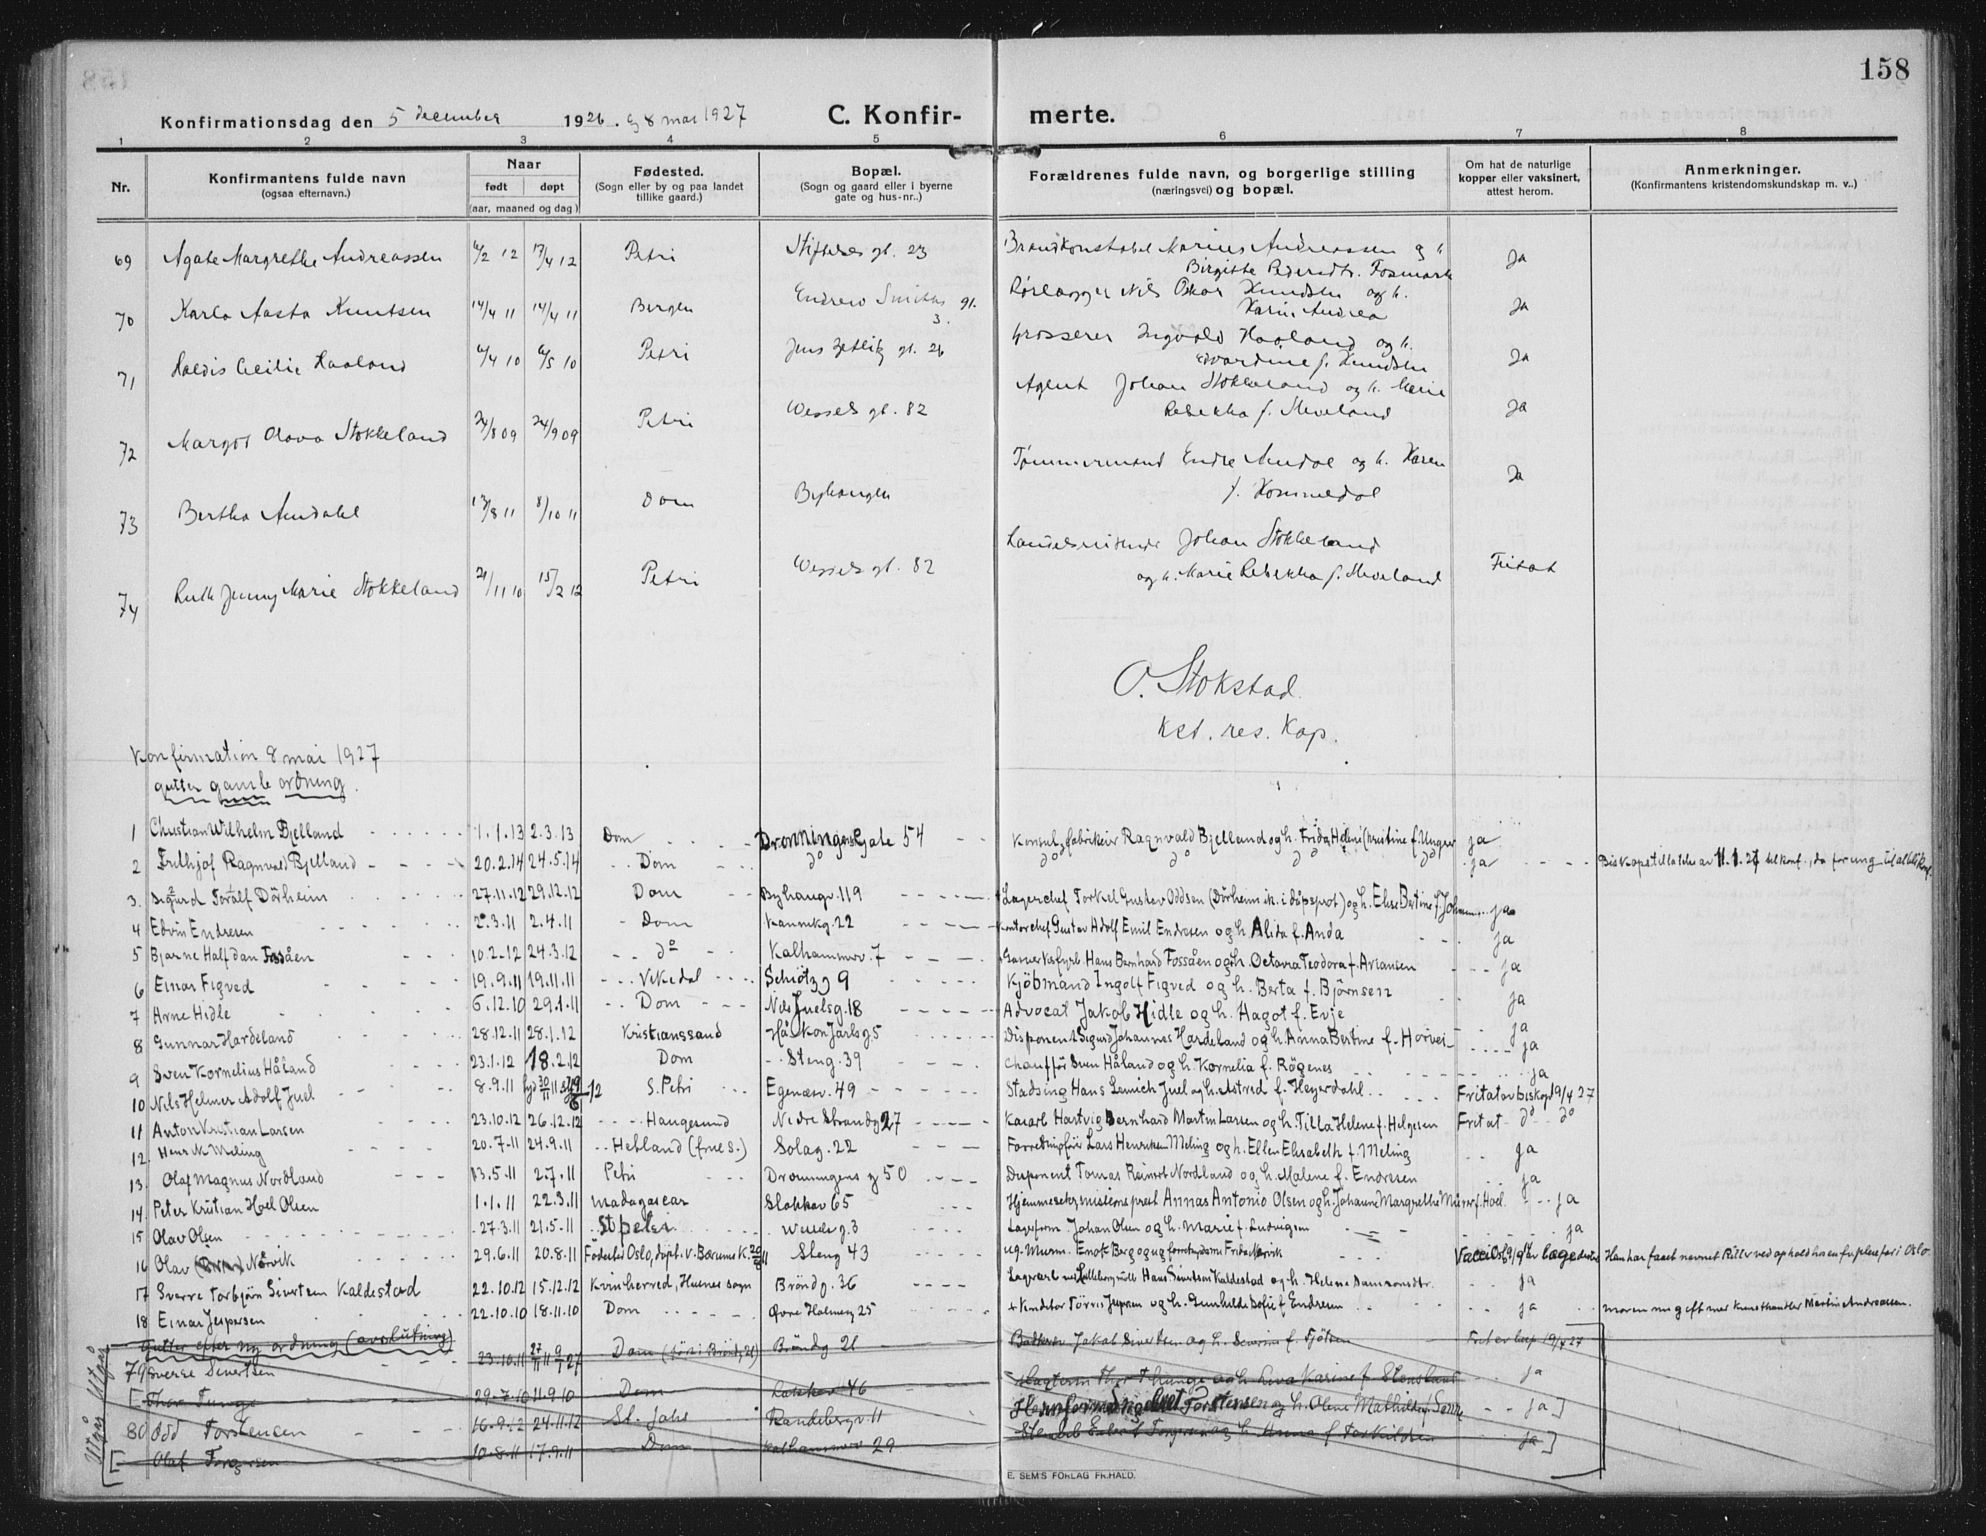 158
Konfirmationsdag den 5 december 1926 og 8 mai 1927 C. Konfir- merte.
1 2 3 4 5 6 7 8
Nr.
Konfirmantens fulde navn
(ogsaa efternavn.)
Naar
født døpt
(aar, maaned og dag)
Fødested.
(Sogn eller by og paa landet
tillike gaard.)
Bopæl.
(Sogn og gaard eller i byerne
gate og hus-nr.)
Forældrenes fulde navn, og borgerlige stilling
(næringsvei) og bopæl.
Om hat de naturlige
kopper eller vaksinert,
attest herom.
Anmerkninger.
(Konfirmantens kristendomskundskap m. v.)
69 Agate Margrethe Andreassen 6/2 12 17/4 12 Petri gt. 23 Brandkonstabel Marius Andreassen og h. Ja
Birgitte Pedersdtr. Fosmark
70 Karla Aasta Knutsen 14/4 11 14/4 11 Bergen Endrew Smiths gt. 3. Rørlægger Nils Oskar Knudsen og h. Ja
Karin Andrea
71 Haldis Cecilie Haaland 6/4 10 6/5 10 Petri Jens Zetlitz gt. 26 Grosserer Ingvald Haaland og h. Ja
Edvardine f. Knudsen
72 Margot Olava Stokkeland 24/8 09 24/9 09 Petri Wessels gt. 82 Agent Johan Stokkeland og h. Marie Ja
Rebekka f. Meveland
73 Bertha Aendahl 13/8 11 8/10 11 Dom Byhaugen Tømmermand Endre Aendal og h. Karen Ja
f. Hommedal
74 Ruth Jenny Marie Stokkeland 21/11 10 15/2 12 Petri Wessels gt. 82 Handelsreisende Johan Stokkeland Fritat
og h. Marie Rebekka f. Meveland
O. Stokstad
Kst. res. Kap.
Konfirmation 8 mai 1927
gutter gamle ordning.
1 Christian Wilhelm Bjelland 1.1.13 2.3.13 Dom Dronningensgate 54 Konsul, fabrikeier Ragnvald Bjelland og h. Frida Helene Christine f. Unger ja
2 Frithjof Ragnvald Bjelland 20.2.14 24.5.14 Dom do do do do do ja Biskopstilladelse av 11.1.27 til konf., da for ung
3. Sigurd Toralf Dørheim 27.11.12 29.12.12 Dom Byhaugv. 119 Lagerchef Torkel Gustav Oddsen (Dørheim ik. i dåpsprot) og h. Else Bertine f. ja
4 Edvin Endresen 2.3.11 2.4.11 Dom Kannikg. 22 Kontorchef Gustav Adolf Emil Endresen og h. Alida f. Anda ja
5 Bjarne Halfdan Fossåen 10.2.12 24.3.12 do Kalhammerv. 7 Hans Bernhard Fossåen og h. Octavia Teodora f. Ariansen ja
6 Einar Figved 19.9.11 19.11.11 Vikedal Schiøtz g 9 Kjöbmand Ingolf Figved og h. Berta f. Bjørnsen
7 Arne Hidle 6.12.10 29.1.11 Dom Nils Juelsg. 18 Advocat Jakob Hidle og h. Hagot f. Evje ja
8 Gunnar Hardeland 28.12.11 28.1.12 Kristianssand Håkon Jarlsg 5 Disponent Sigurd Johannes Hardeland og h. Anna Bertine f. Horvei ja
9 Sven Kornelius Håland 23.1.12 18.2.12 Dom Steng. 39 Chauffør Sven Håland og h. Kornelia f. Rögenes ja
10 Nils Helmer Adolf Juel 8.9.11 S. Petri Egenæsv. 49 Stadsing Hans Lemich Juel og h. Astred f. Heyerdahl Fritat av biskop 19/4 27
11 Anton Kristian Larsen 23.10.12 26.12.12 Haugesund Nedre Strandg 27 Hartvig Bernhard Martin Larsen og h. Tilla Helene f. Helgesen Fritat do do
12. Hans N. Meling 20.7.11 24.9.11 Hetland (frue s.) Solag. 22 Forretningsfør Lars Henriksen Meling og h. Ellen Elisabeth f. Meling ja
13. Olaf Magnus Nordland 13.5.11 2.7.11 Petri Dronningens g 50 Disponent Tomas Reinert Nordland og h. Malene f. Endresen ja
14. Peter Kristian Hoel Olsen 1.1.11 22.3.11 Madagascar Stokkav 65 Hjemmesekr, misionsprest Annas Antonio Olsen og h. Johanne Margrethe f. Hoel ja
15 Olav Olsen 27.3.11 21.5.11 St peter g. 3 Johan Olsen og h. Marie f. Ludvigsen ja
16 Olav Nærvik 29.6.11 20.8.11 Födested Oslo, döpt. v. Bærums K. Steng 43 ug. Murm. Enok Berg og ug Frida Nærvik Han har faaet navnet ved ophold hos en i Oslo
17 Sverre Torbjørn Sivertsen Kaldestad 22.10.12 15.12.12 Kvinherred, Husnes sogn Bröndg. 36 Hans Sivertsen Kaldestad og h. Helene Samsonsdtr. ja
18 Einar Jespersen 22.10.10 18.11.10 Dom Øvre Holmeg 25 Konditor Jespersen og h. Gunhilde Sofie f. Endresen ja moren nu gift med kunsthandler Martin Andreassen.
Gutter efter ny ordning (avslutning)
Utgår Utgår
79 Sverre Sivertsen 23.10.11 Dom Bröndg 21 Jakob Sivertsen og h. Severine f. Fjölsen 19/4 27
Thor Tunge 29.7.10 11.9.10 Dom 46 ja
80 Odd Torstensen 16.9.12 24.11.12 St. Johs Randabergv 11 Torstensen og h. Oline Mathilde ja
Olaf Torgersen 10.8.11 17.9.11 Dom Kalhammerv 29 Torgersen og h. Anna f. Torkildsen ja
E. SEM'S FORLAG FR.HALD.